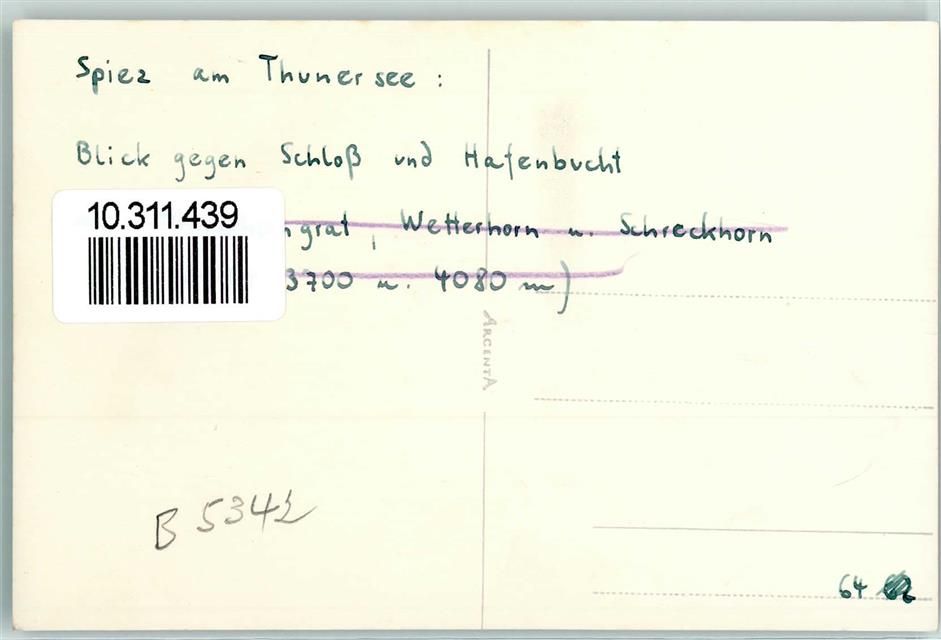 Spiez am Thunersee:
Blick gegen Schloß und Hafenbucht
10.311.439
ngrat, Wetterhorn u. Schreckhorn
3700 u. 4080 m)
ARGENTA
B 5342
64